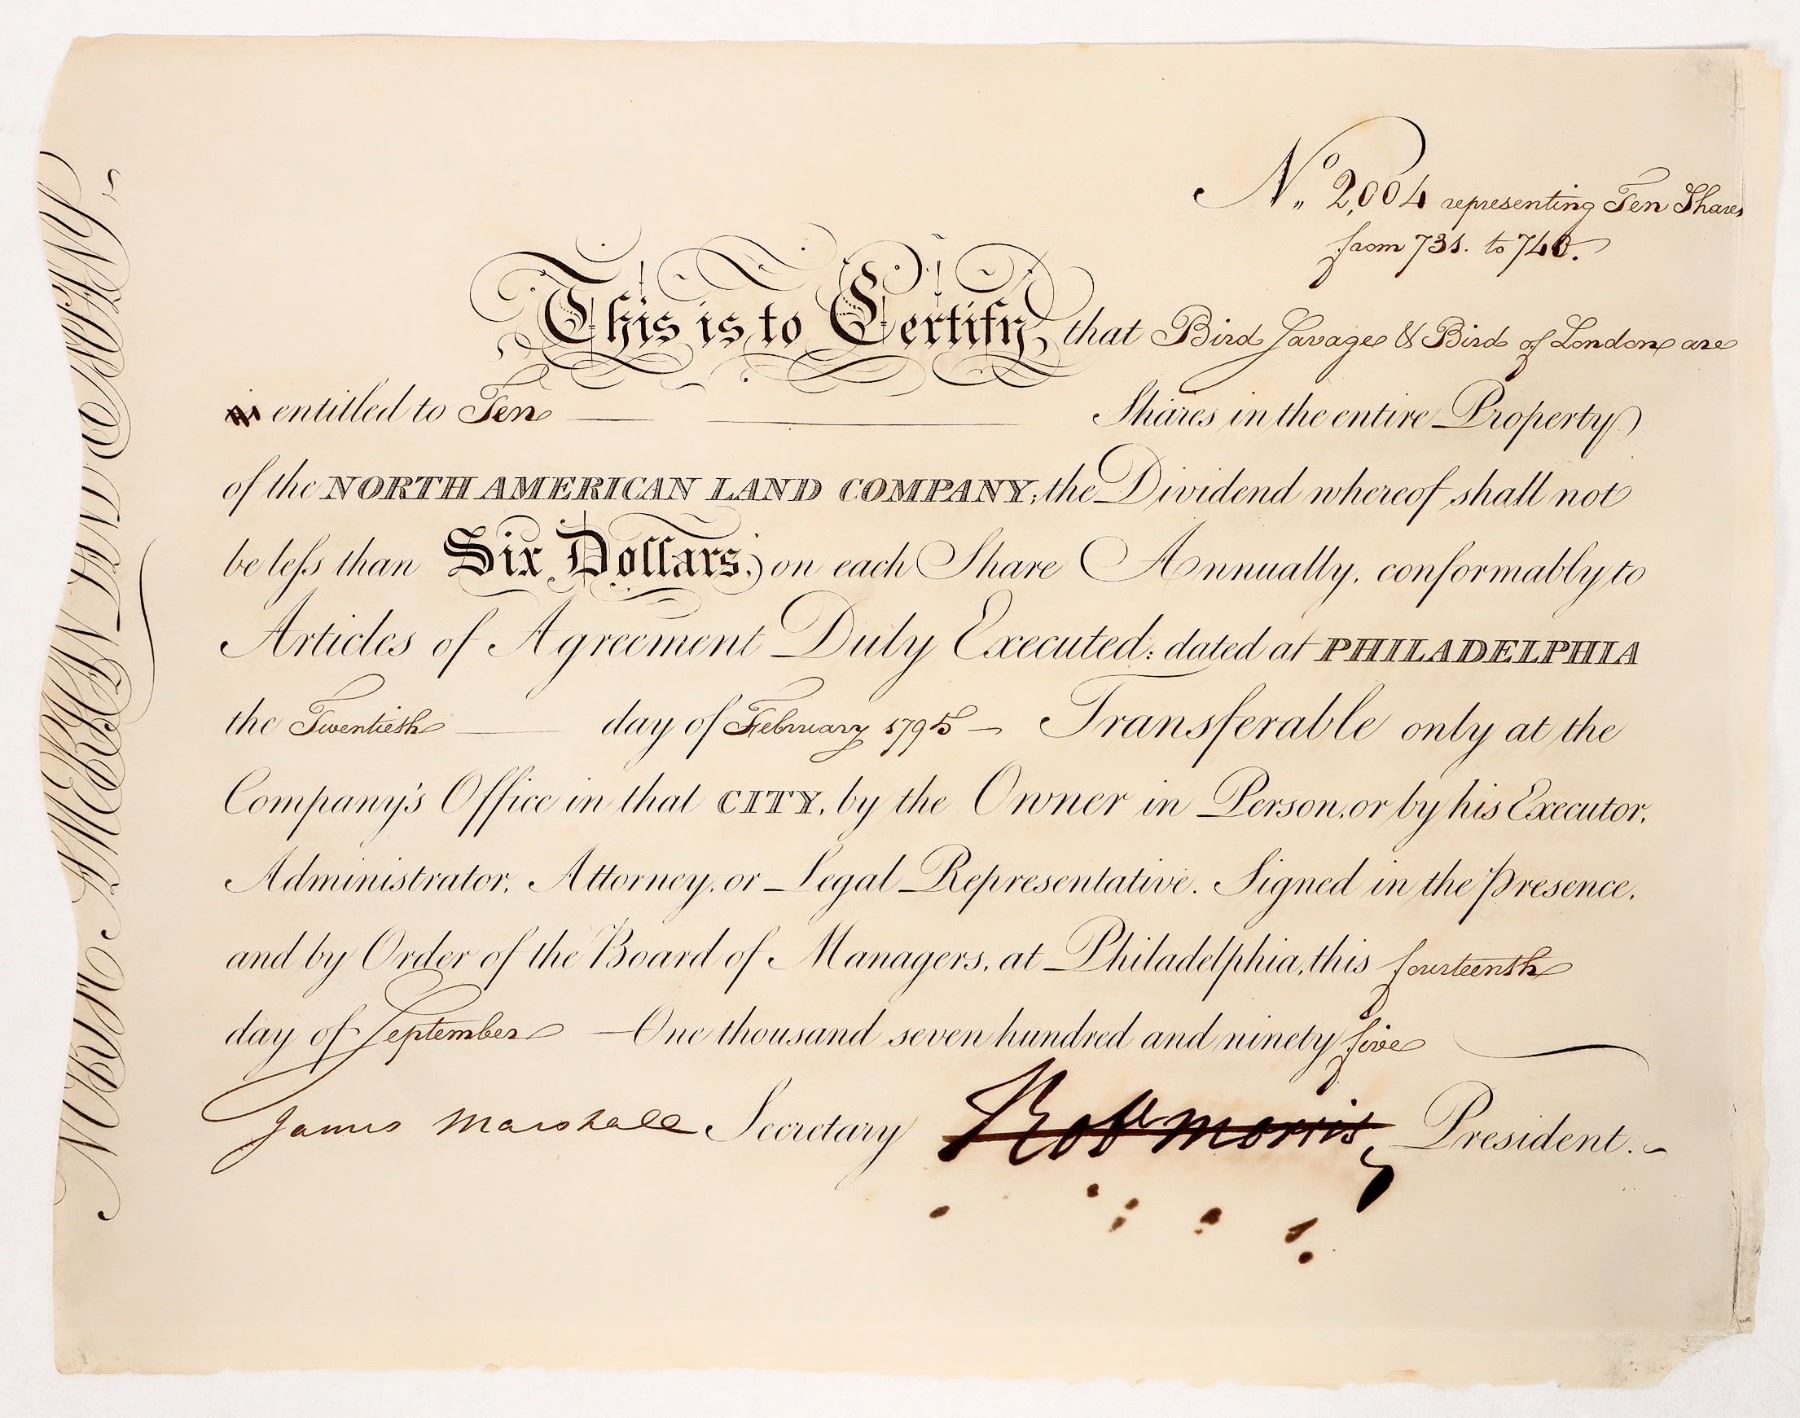 No. 2,004 representing Ten Shares
from 731. to 740.
This is to Certify, that Bird Savage & Bird of London are
entitled to Ten Shares in the entire Property
of the NORTH AMERICAN LAND COMPANY; the Dividend whereof shall not
be leſs than Six Dollars, on each Share Annually, conformably to
Articles of Agreement Duly Executed: dated at PHILADELPHIA
the Twentieth day of February 1795 Transferable only at the
Company's Office in that CITY, by the Owner in Person, or by his Executor,
Administrator, Attorney, or Legal Representative. Signed in the Presence,
and by Order of the Board of Managers, at Philadelphia, this fourteenth
day of September One thousand seven hundred and ninety five
James Marshall Secretary Robt Morris President.
NORTH AMERICAN LAND COMPANY